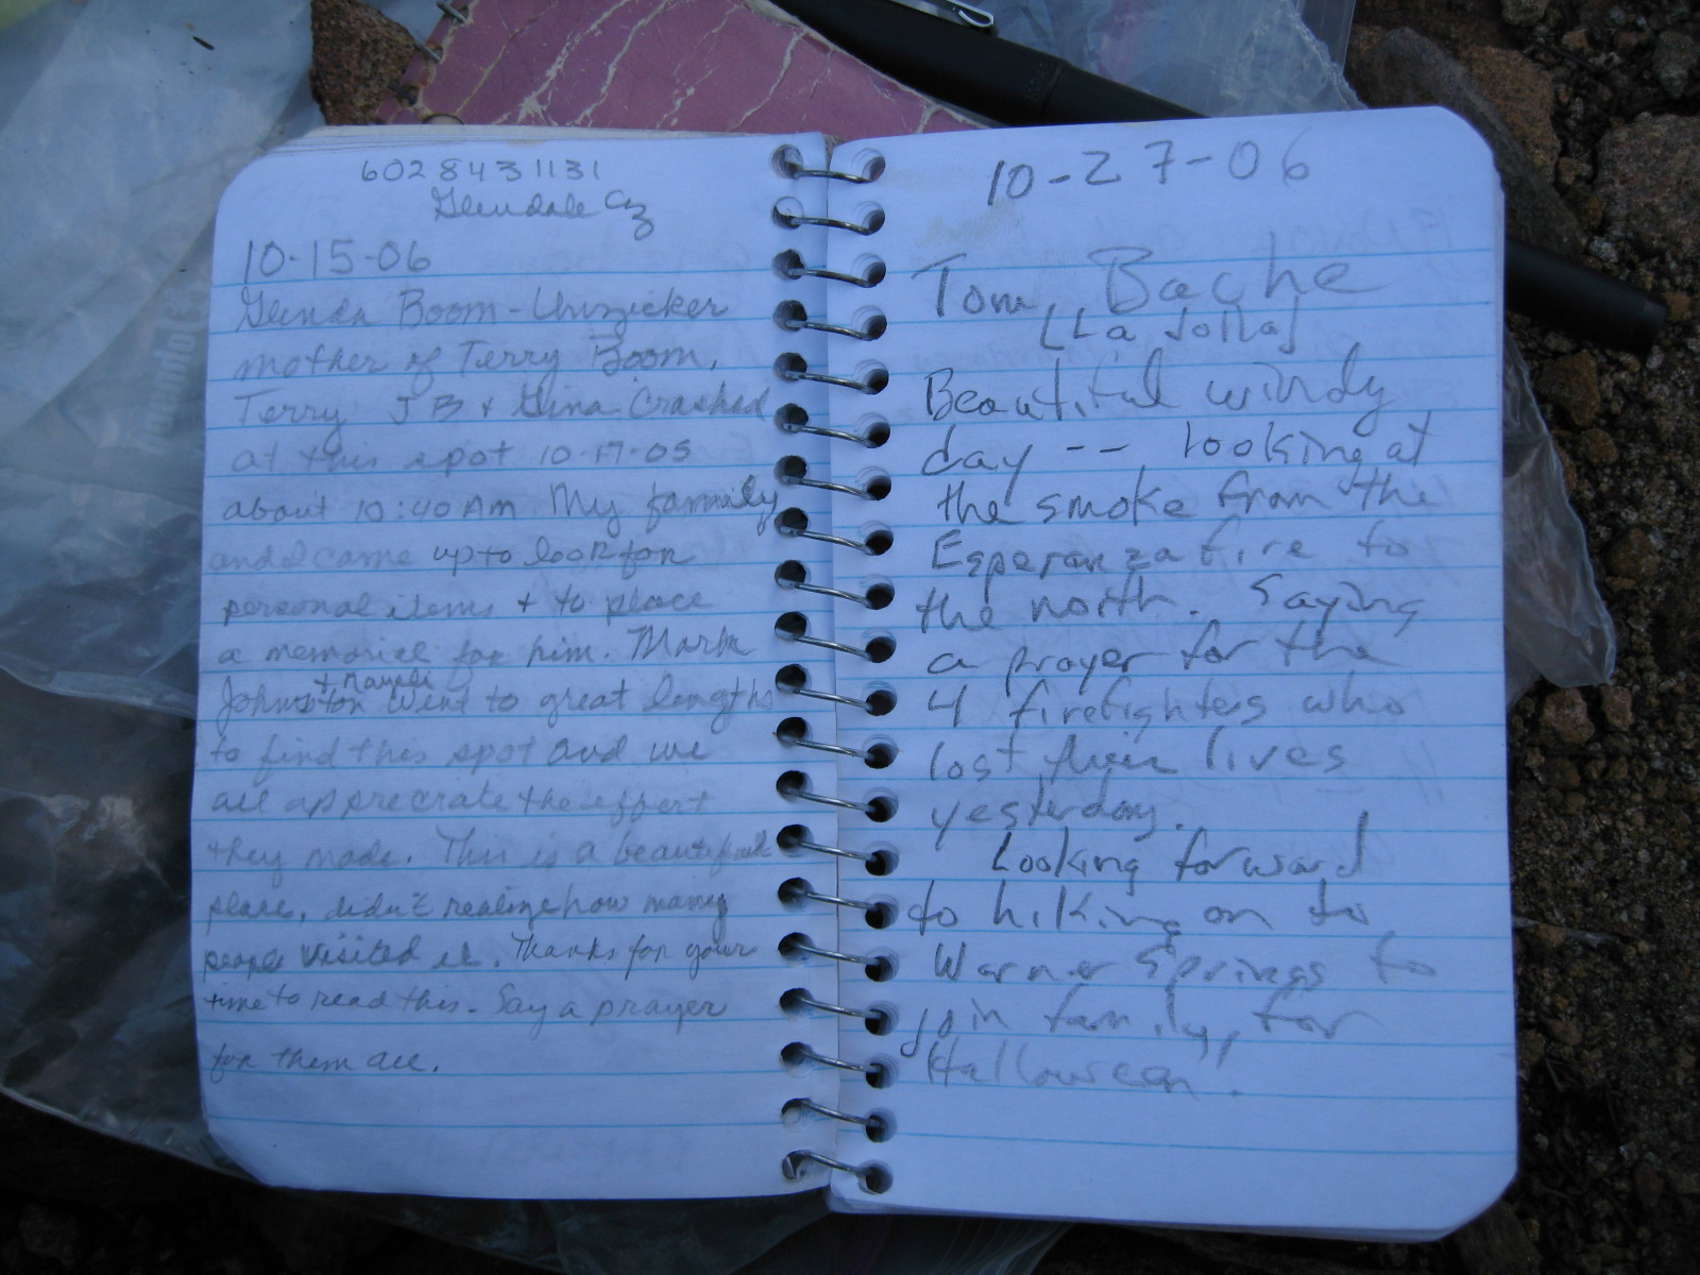 602 843 1131
Glendale Az
10-15-06
Glenda Boom-Unzicker
mother of Terry Boom.
Terry JB + Gina Crashed
at this spot 10-17-05
about 10:40 Am My family
and I came up to look for
personal items + to place
a memorial for him. Mark
+ Nayeli
Johnston went to great lengths
to find this spot and we
all apprecrate the effort
they made. This is a beautiful
place, didn't realize how many
people visited it. Thanks for your
time to read this. Say a prayer
for them all.
10-27-06
Tom Bache
[La Jolla]
Beautiful windy
day -- looking at
the smoke from the
Esperanza fire to
the north. Saying
a prayer for the
4 firefighters who
lost their lives
yesterday.
Looking forward
to hiking on to
Warner Springs to
join family, for
Halloween!